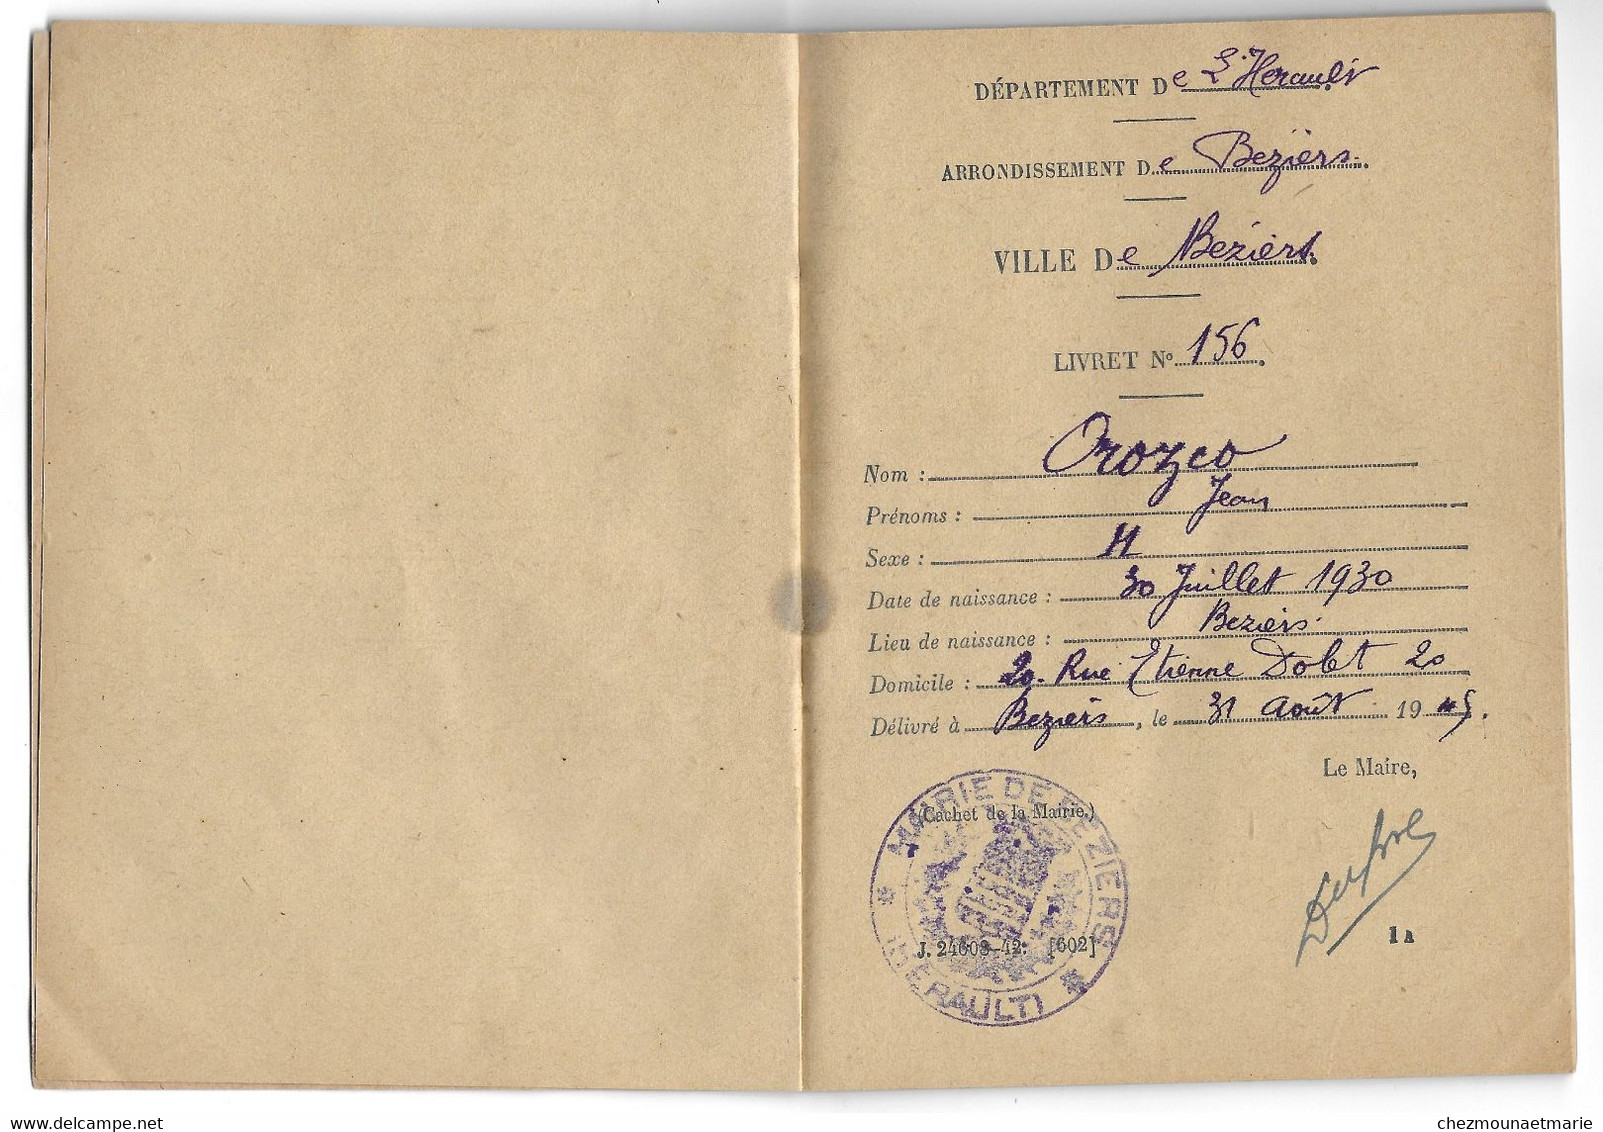 DÉPARTEMENT De L'Herault
ARRONDISSEMENT De Beziers.
VILLE De Beziers.
LIVRET No 156.
Nom : Orozco
Prénoms : Jean
Sexe : H
Date de naissance : 30 Juillet 1930
Lieu de naissance : Beziers.
Domicile : 20. Rue Etienne Dolet 20
Délivré à Beziers, le 31 Août 1945.
Le Maire,
(Cachet de la Mairie.)
MAIRIE DE BEZIERS
(HERAULT)
J. 24603-42. [602]
1A
chezmounaetmarie